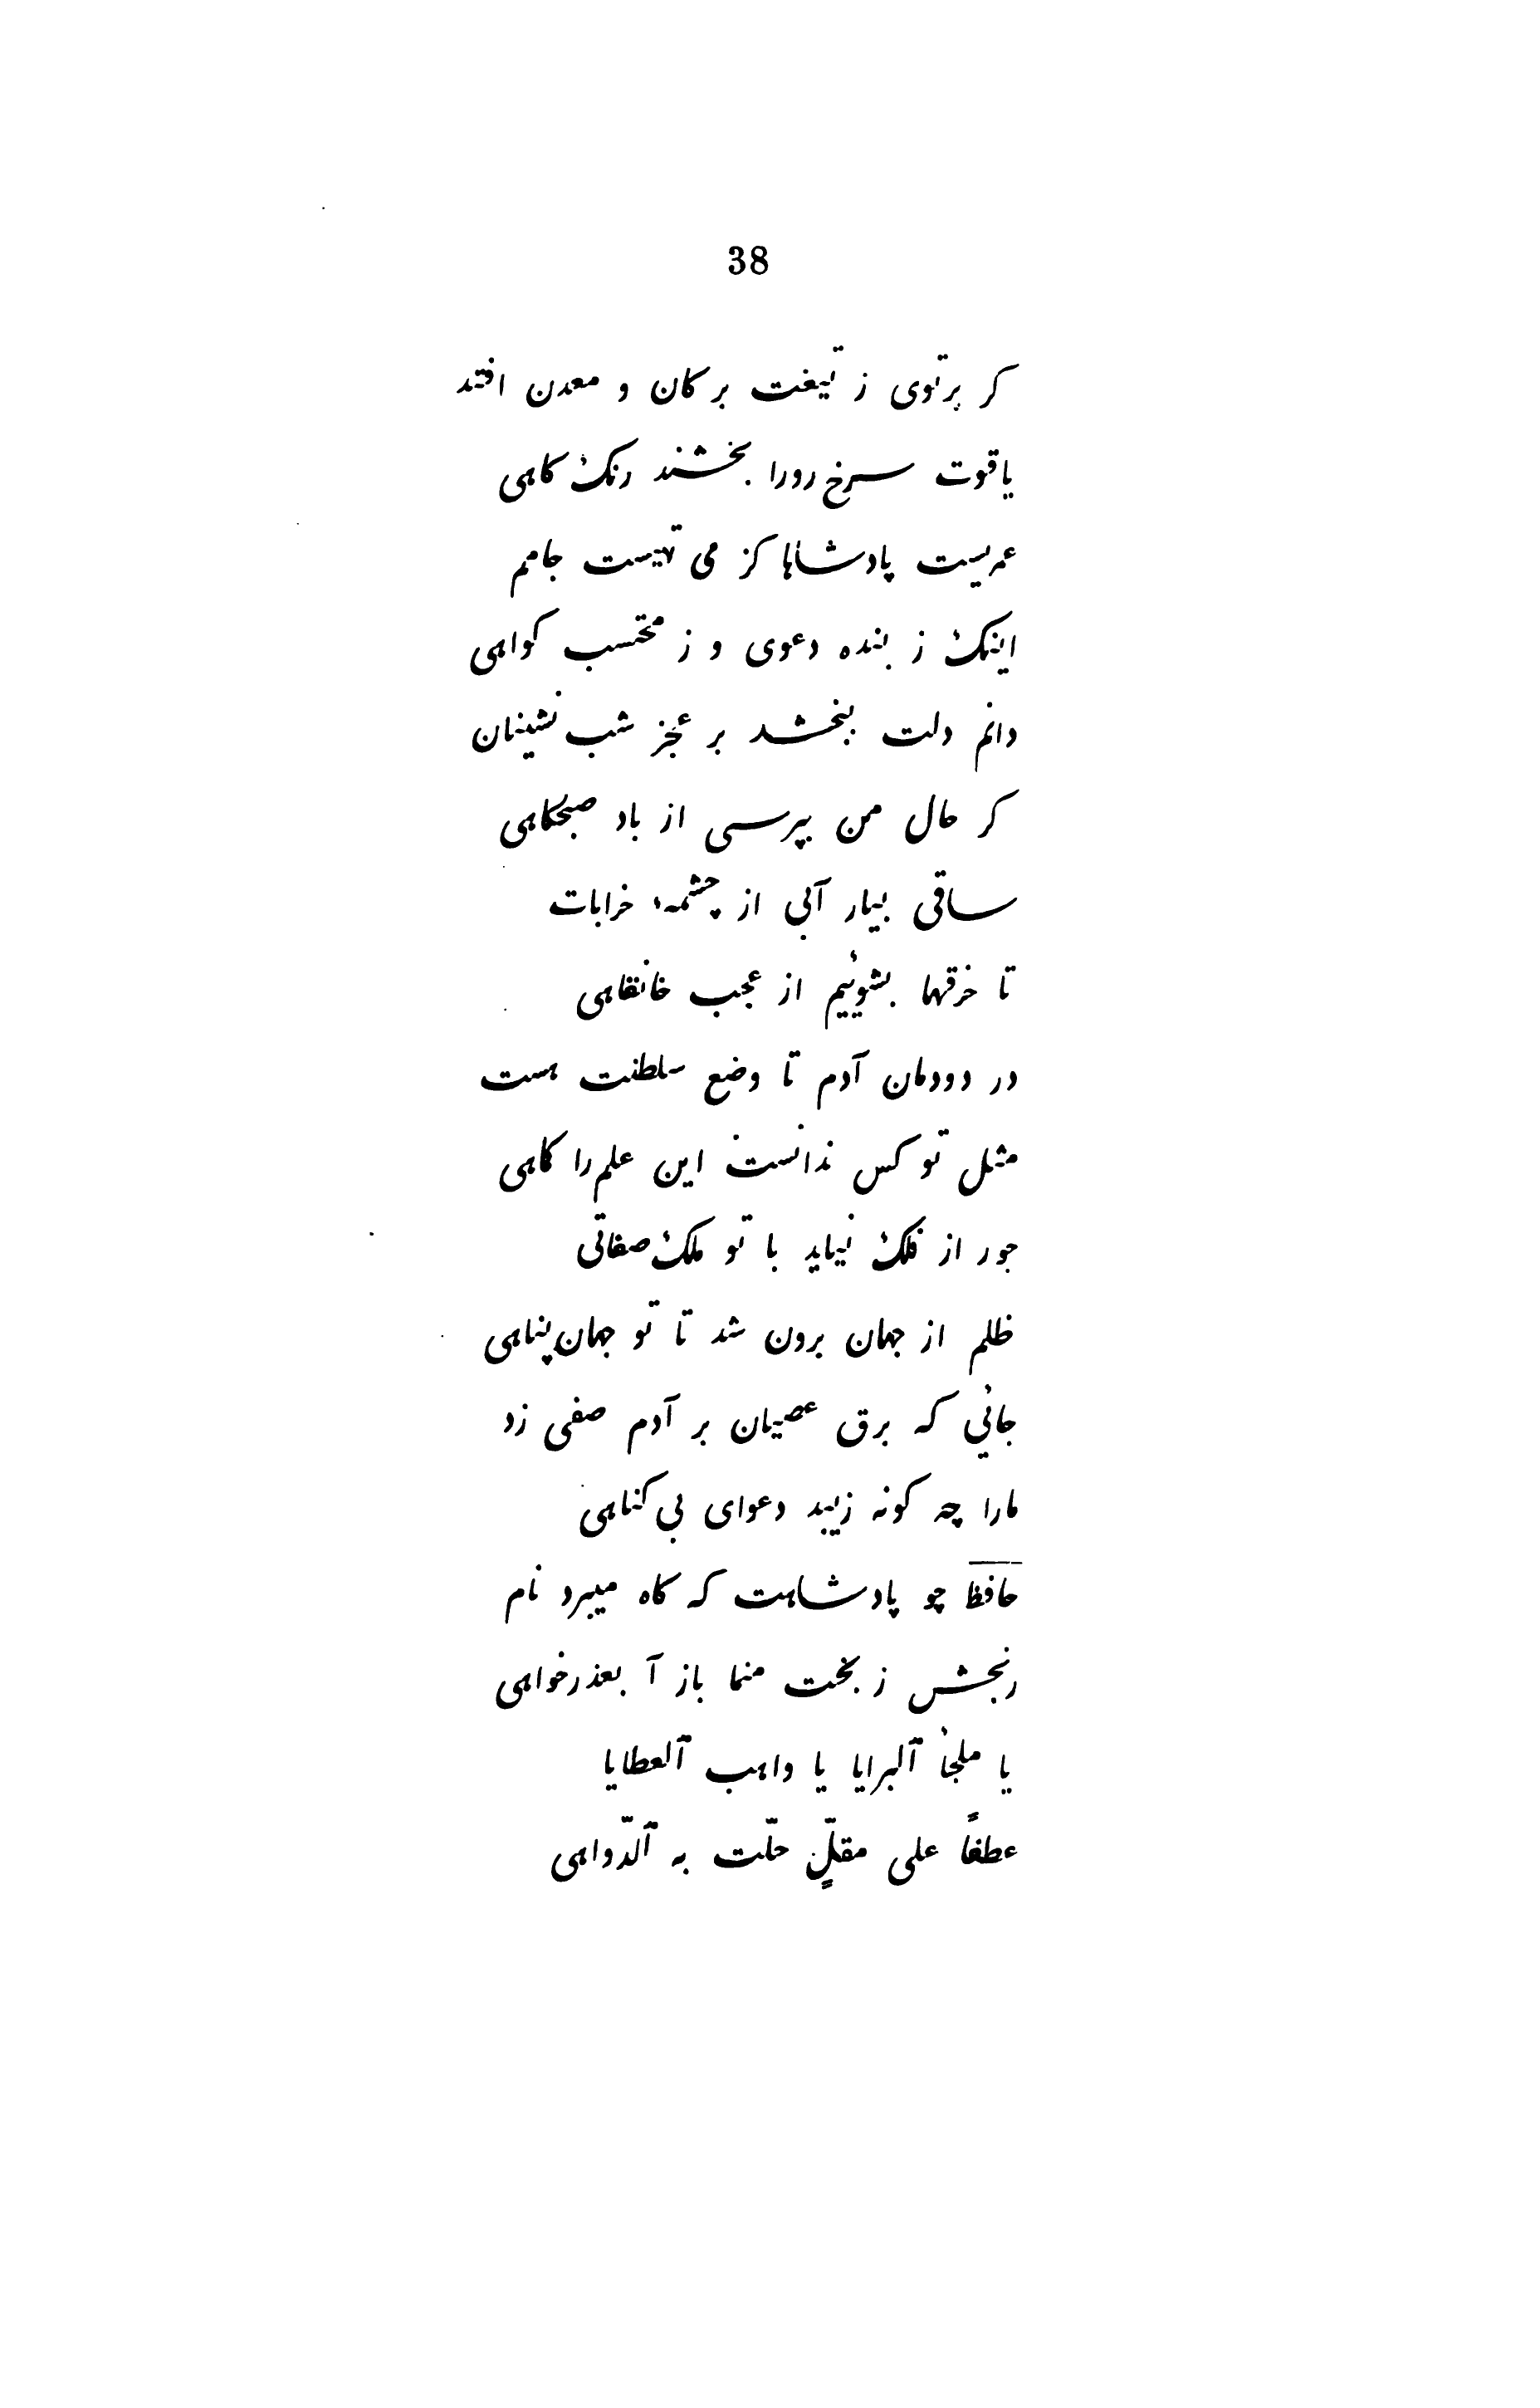 38
کر پرتوی ز تیغت بر کان و معدن افتد
یاقوت سرخ رورا بخشند رنک کاهی
عمریست پادشاها کز می تهیست جامم
اینک ز بنده دعوی و ز محتسب کواهی
دانم دلت ببخشد بر عجز شب نشینان
کر حال من بپرسی از باد صبحکاهی
ساقی بیار آبی از چشمهٔ خرابات
تا خرقها بشوئیم از عجب خانقاهی
در دودمان آدم تا وضع سلطنت هست
مثل تو کس ندانست این علم را کماهی
جور از فلک نیاید با تو ملک صفاتی
ظلم از جهان برون شد تا تو جهان پناهی
جائی که برق عصیان بر آدم صفی زد
مارا چه کونه زیبد دعوای بی کناهی
حافظ چو پادشاهت که کاه میبرد نام
رنجش ز بخت منما باز آ بعذرخواهی
یا ملجأ ٱلبرایا یا واهب ٱلعطایا
عطفًا علی مقلٍّ حلّت به ٱلدّواهی